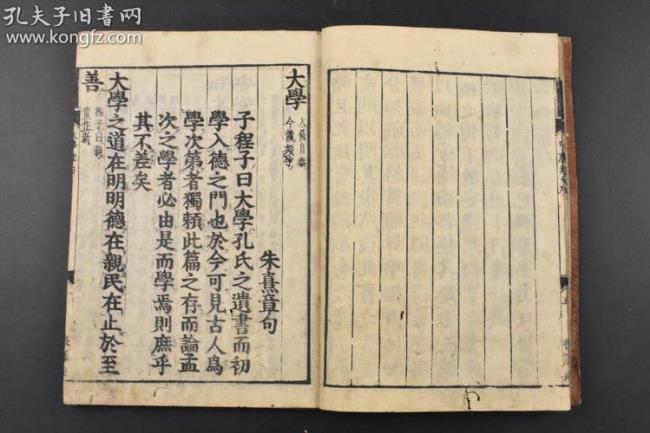 孔夫子旧书网
www.kongfz.com
大學
大舊音泰
今讀如字
朱熹章句
子程子曰大學孔氏之遺書而初
學入德之門也於今可見古人爲
學次第者獨賴此篇之存而論孟
次之學者必由是而學焉則庶乎
其不差矣
大學之道在明明德在親民在止於至
善
程子曰親
當作新